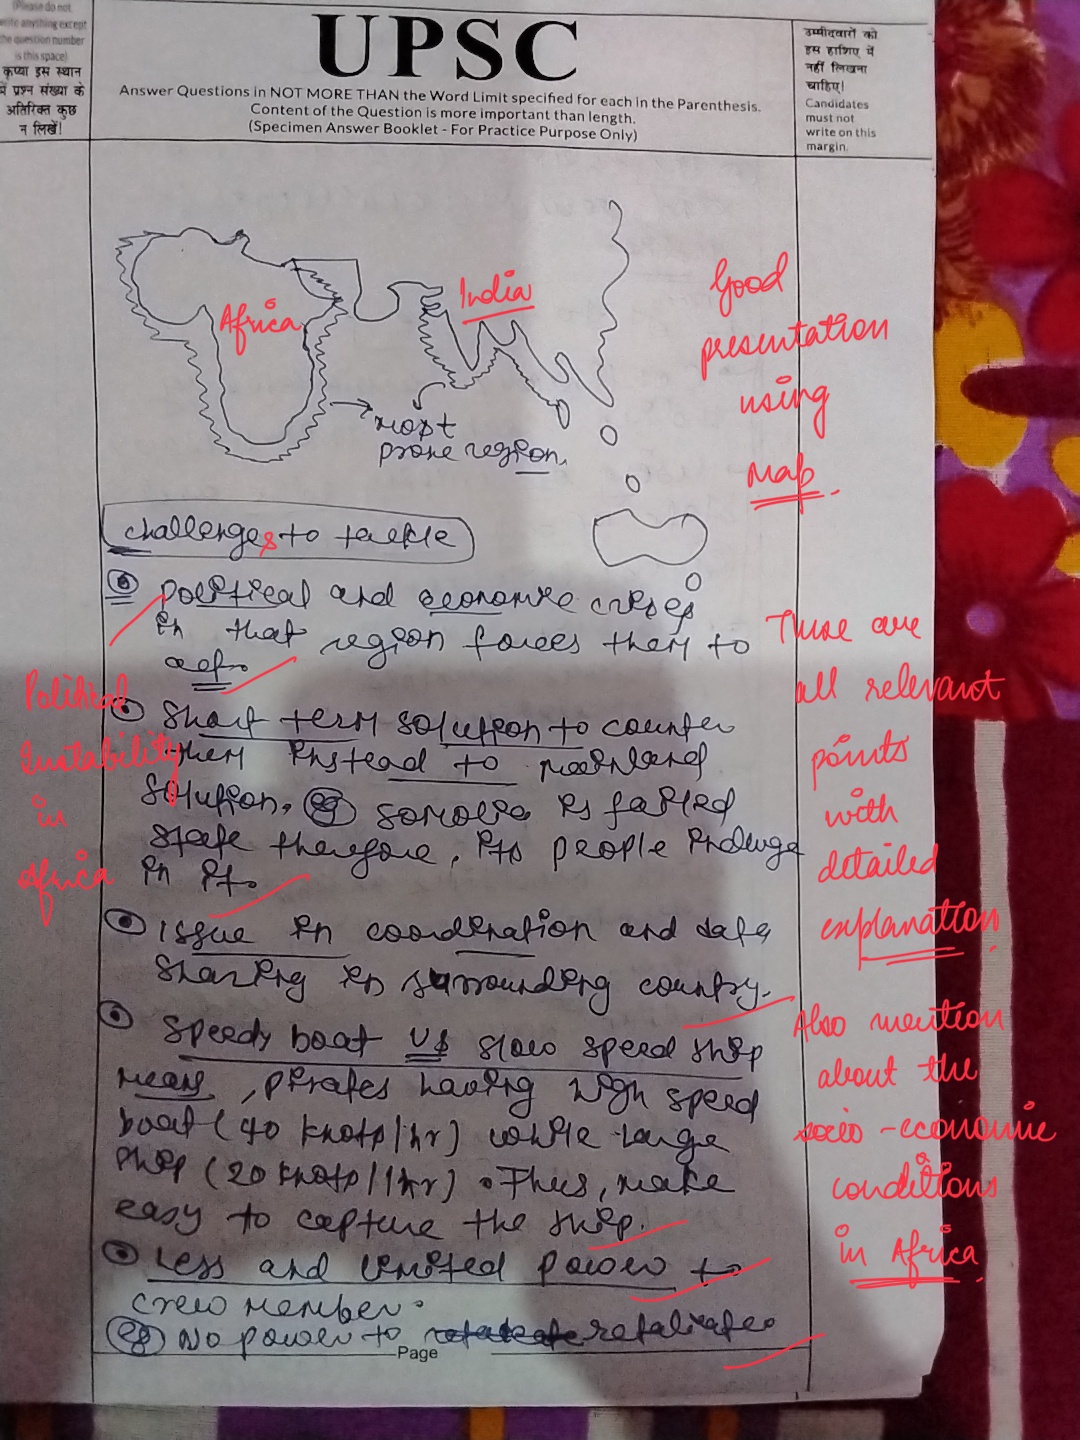 (Please do not
write anything except
the question number
is this space)
कृप्या इस स्थान
में प्रश्न संख्या के
अतिरिक्त कुछ
न लिखें!
UPSC
Answer Questions in NOT MORE THAN the Word Limit specified for each in the Parenthesis.
Content of the Question is more important than length.
(Specimen Answer Booklet - For Practice Purpose Only)
उम्मीदवारों को
इस हाशिए में
नहीं लिखना
चाहिए!
Candidates
must not
write on this
margin.
Africa
India
Good
presentation
using
Map.
most
prone region.
challenges to tackle
Political and economic crises
in that region forces them to
act.
Political
Instability
in
Africa
Short term solution to counter
them instead to mainland
solution. eg Somalia is failed
state therefore, its people indulge
in it.
Issue in coordination and data
sharing in surrounding country.
Speedy boat vs slow speed ship
means, pirates having high speed
boat (40 knots/hr) while large
ship (20 knots/1hr). Thus, make
easy to capture the ship.
Less and limited power to
crew member.
eg No power to retaliate
These are
all relevant
points
with
detailed
explanation
Also mention
about the
socio-economic
conditions
in Africa.
Page